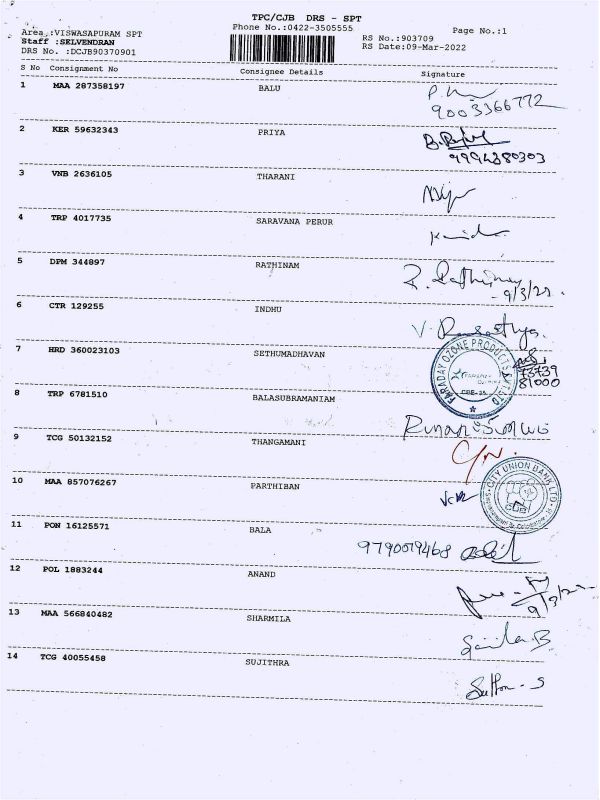 TPC/CJB DRS - SPT
Phone No.:0422-3505555
Area :VISWASAPURAM SPT
Staff :SELVENDRAN
DRS No. :DCJB90370901
RS No.:903709
RS Date:09-Mar-2022
Page No.:1
S No Consignment No Consignee Details Signature
1 MAA 287358197 BALU
9003366772
2 KER 59632343 PRIYA
9994380303
3 VNB 2636105 THARANI
4 TRP 4017735 SARAVANA PERUR
5 DPM 344897 RATHINAM
9/3/22.
6 CTR 129255 INDHU
7 HRD 360023103 SETHUMADHAVAN
FARADAY OZONE PRODUCTS
73739
81000
8 TRP 6781510 BALASUBRAMANIAM
9 TCG 50132152 THANGAMANI
10 MAA 857076267 PARTHIBAN
CITY UNION BANK LTD
CUB
11 PON 16125571 BALA
9790019468
12 POL 1883244 ANAND
9/3/22
13 MAA 566840482 SHARMILA
14 TCG 40055458 SUJITHRA